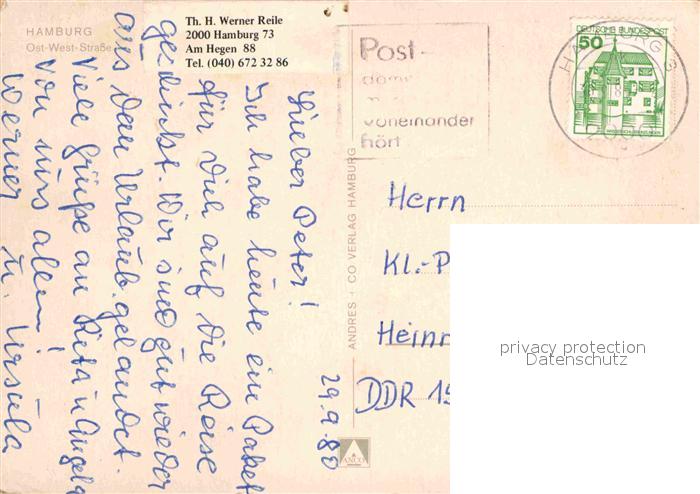 HAMBURG
Ost-West-Straße
Th. H. Werner Reile
2000 Hamburg 73
Am Hegen 88
Tel. (040) 672 32 86
29.9.80
Lieber Peter!
Ich habe heute ein Paket
für Dich auf die Reise
geschickt. Wir sind gut wieder
aus dem Urlaub gelandet.
Viele Grüße an Rita u Angela
von uns allen!
Werner u. Ursula
ANDRES + CO VERLAG HAMBURG
ANCO
Post-
voneinander
hört
DEUTSCHE BUNDESPOST
50
HAMBURG 3
Herrn
Kl.-P
Heinr
DDR 15
privacy protection
Datenschutz